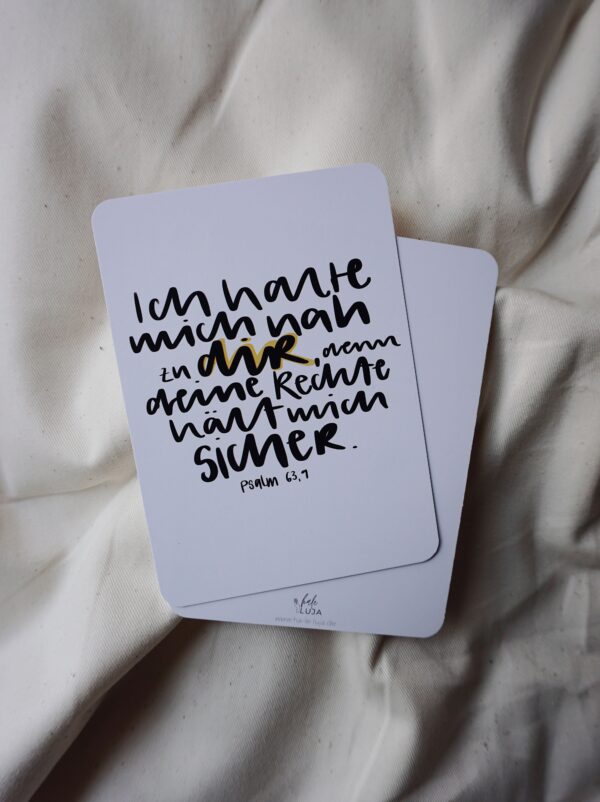 Ich halte
mich nah
zu dir, denn
deine Rechte
hält mich
sicher.
Psalm 63,9
hale
LUJA
www.ha-le-luja.de